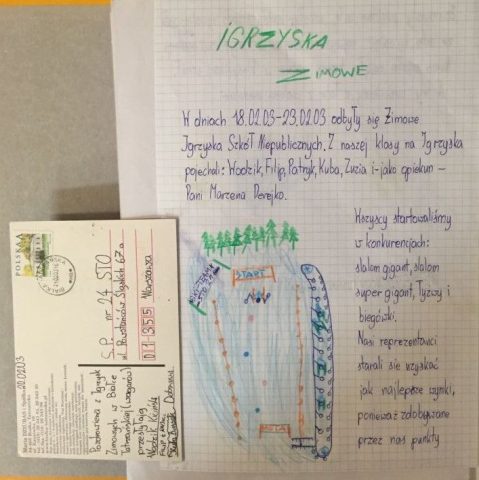 IGRZYSKA
ZIMOWE
W dniach 18.02.03-23.02.03 odbyły się Zimowe
Igrzyska Szkół Niepublicznych. Z naszej klasy na Igrzyska
pojechali: Wodzik, Filip, Patryk, Kuba, Zuzia i-jako opiekun -
Pani Marzena Derejko.
Wszyscy startowaliśmy
w konkurencjach:
slalom gygant, slalom
super gigant, łyżwy i
biegówki.
Nasi reprezentanci
starali się uzyskać
jak najlepsze wyniki,
ponieważ zdobywane
przez nas punkty
START
META
POLSKA
S.P. nr 24 STO
ul. Powstańców Śląskich 67a
01-355 Warszawa
Pozdrowienia z Igrzysk
Zimowych w Białce
Tatrzańskiej
przesyłają
20.02.03